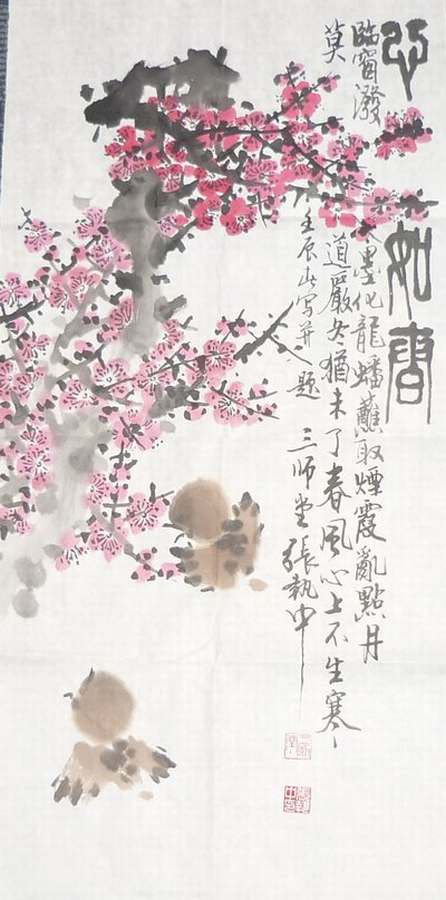 心如春
臨窗潑墨化龍蟠蘸取煙霞亂點丹
莫道嚴冬猶未了春風心上不生寒
壬辰春写并題三师堂張執中